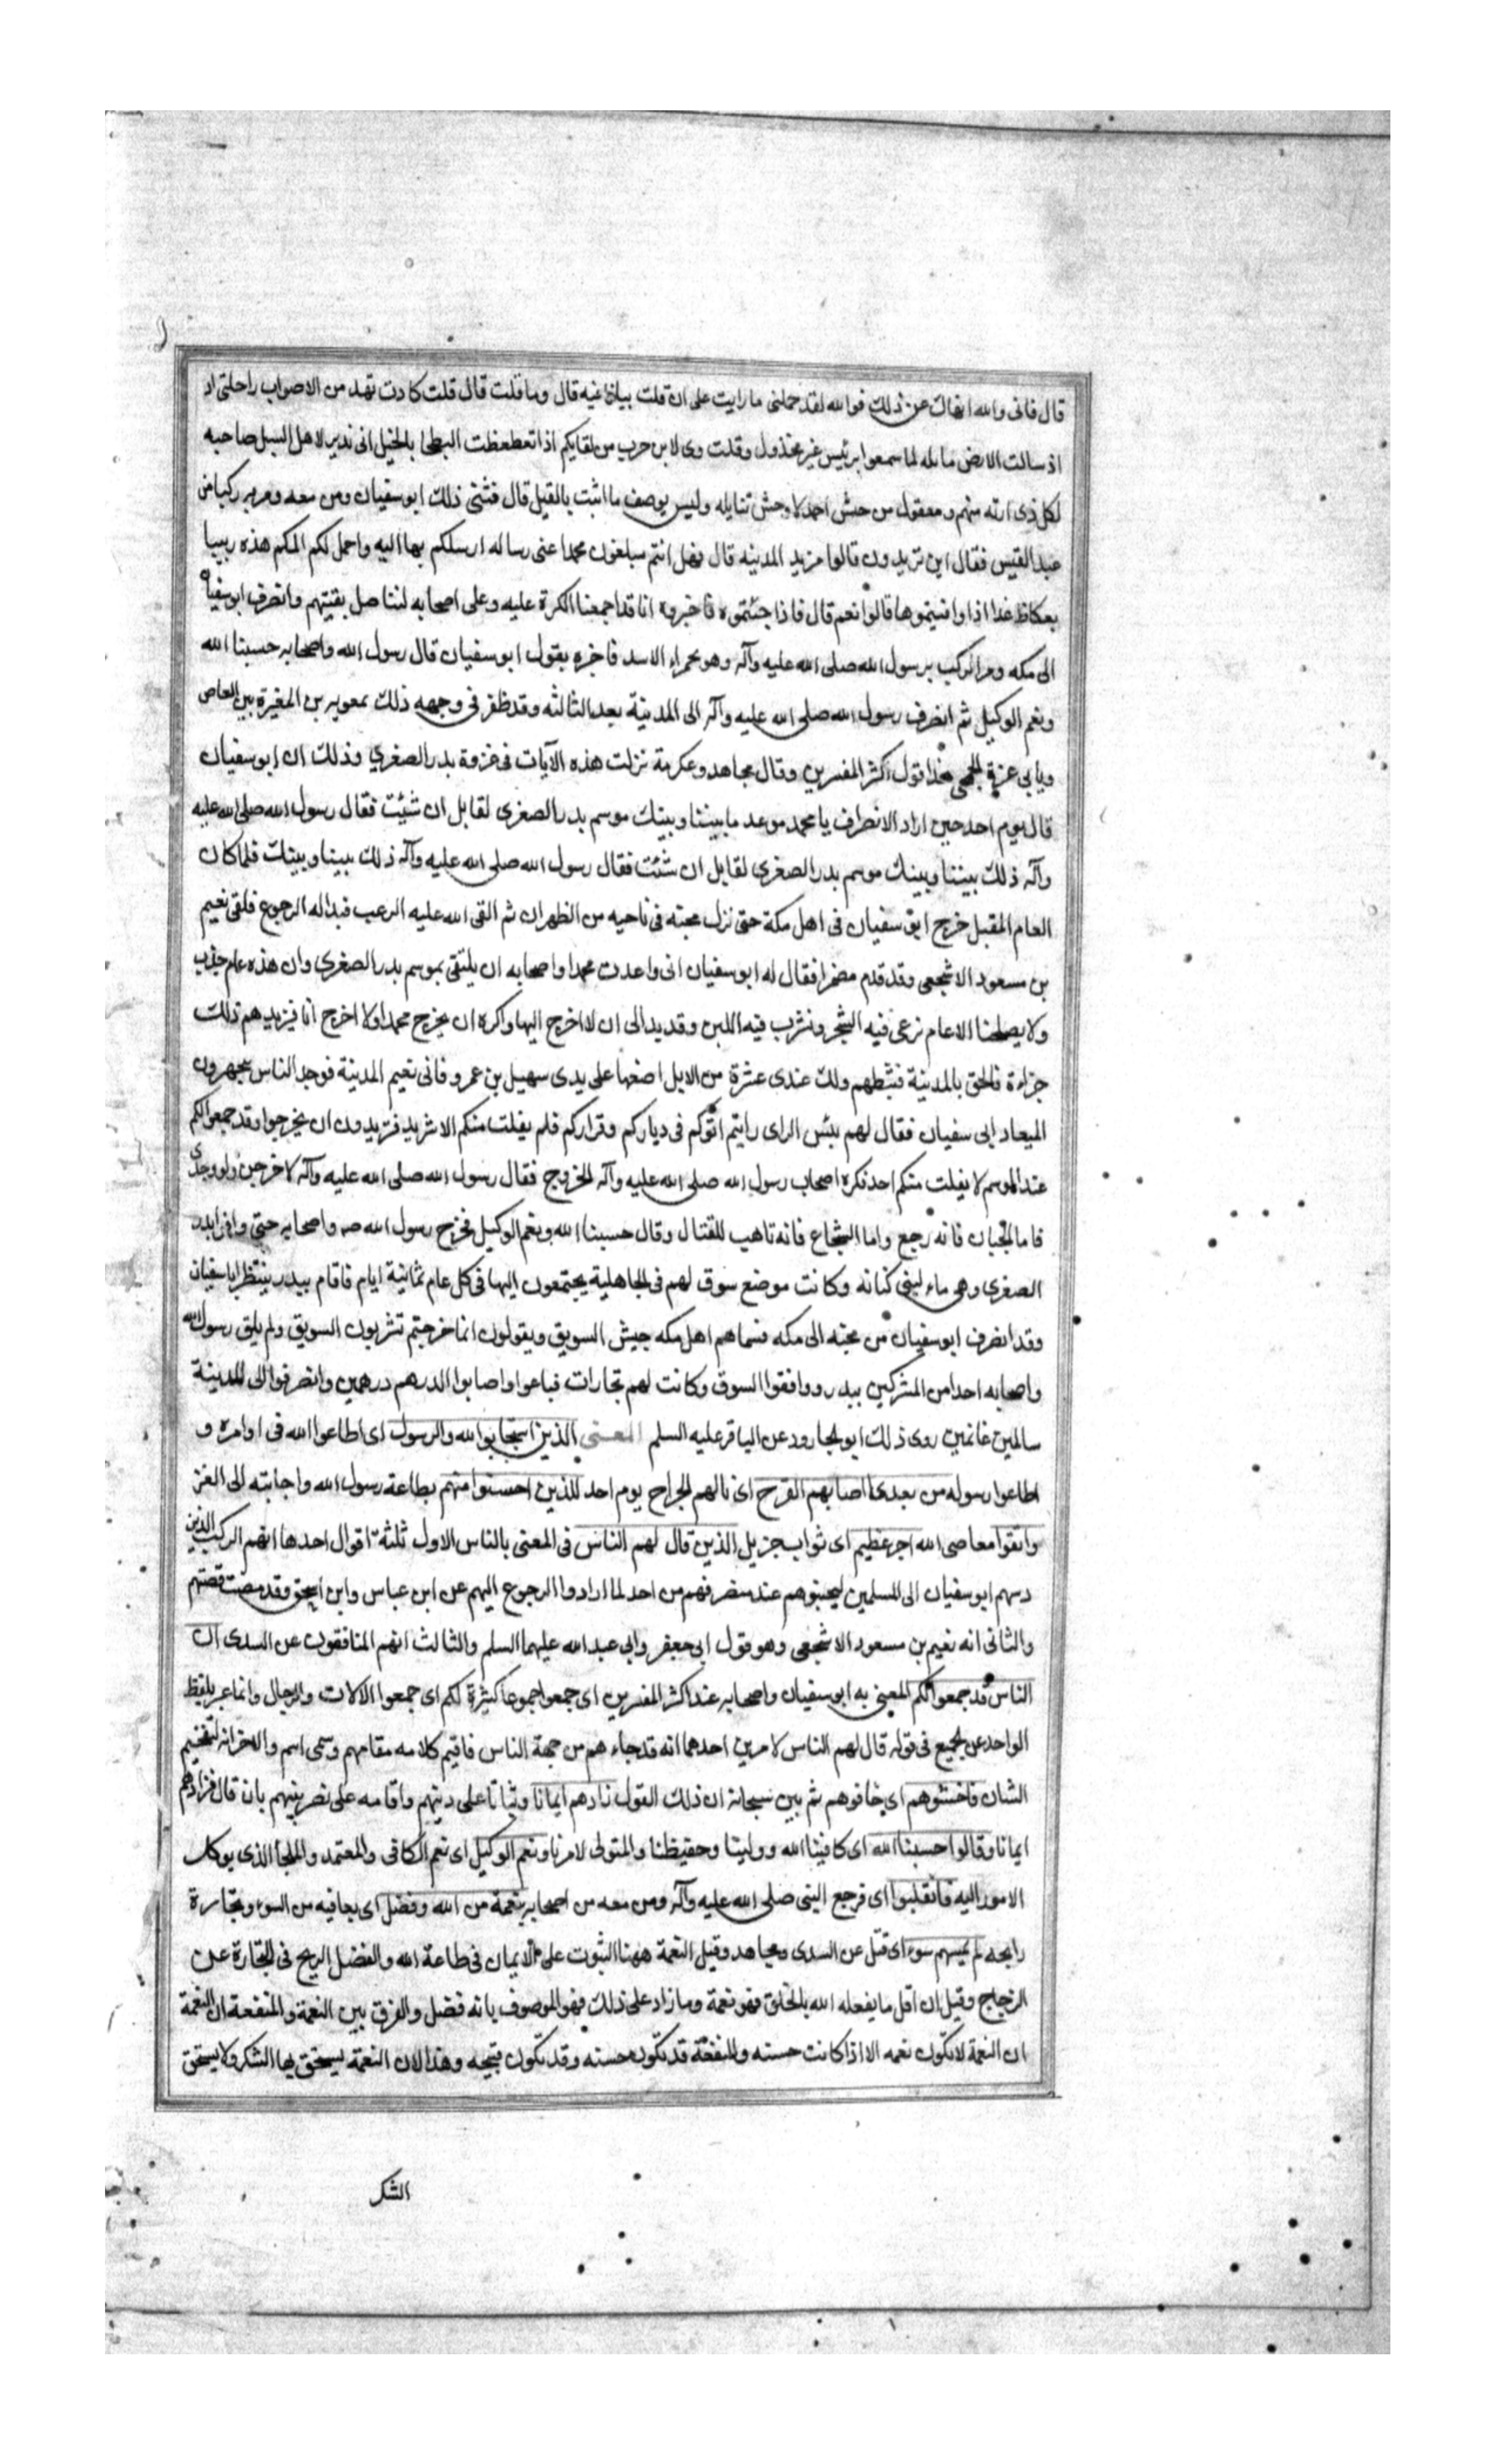 قال فانى والله انهاك عن ذلك فوالله لقد حملنى ما رايت على ان قلت بياتا فيه قال وما قلت قال قلت كادت تهد من الاصواب راحلتى اذ
اذ سالت الارض مايله لما سمعوا برئيس غير مخذول وقلت وى لابن حرب من لقايكم اذا تعطعظت البطحا بالخيل انى نذير لاهل السبل صاحيه
لكل ذى اربه منهم ومعقول من حبش احمد لا وحش تنابله وليس يوصف ما اثبت بالقيل قال فثنى ذلك ابو سفيان ومن معه ومر به ركبا من
عبد القيس فقال اين تريدون قالوا مزيد المدينه قال فهل انتم مبلغون محمدا عنى رساله ارسلكم بها اليه واحمل لكم المكم هذه زبيبا
بعكاظ غدا اذا وافيتموها قالوا نعم قال فاذا جئتموه فاخبروه انا قد اجمعنا الكرة عليه وعلى اصحابه لنستاصل بقيتهم وانصرف ابو سفيان
الى مكه ومر الركب برسول الله صلى الله عليه وآله وهو بحمراء الاسد فاخبره بقول ابو سفيان قال رسول الله واصحابه حسبنا الله
ونعم الوكيل ثم انصرف رسول الله صلى الله عليه وآله الى المدينة بعد الثالثه وقد ظفر فى وجهه ذلك بمعويه بن المغيرة بن العاص
وبابى عزة الجمحى هذا قول اكثر المفسرين وقال مجاهد وعكرمة نزلت هذه الآيات فى غزوة بدر الصغرى وذلك ان ابو سفيان
قال يوم احد حين اراد الانصراف يا محمد موعد ما بيننا وبينك موسم بدر الصغرى لقابل ان شئت فقال رسول الله صلى الله عليه
وآله ذلك بيننا وبينك موسم بدر الصغرى لقابل ان شئت فقال رسول الله صلى الله عليه وآله ذلك بيننا وبينك فلما كان
العام المقبل خرج ابو سفيان فى اهل مكة حتى نزل مجنه فى ناحيه من الظهران ثم القى الله عليه الرعب فبدا له الرجوع فلقى نعيم
بن مسعود الاشجعى وقد قدم معتمرا فقال له ابو سفيان انى واعدت محمدا واصحابه ان يلتقى بموسم بدر الصغرى وان هذه عام جذب
ولا يصلحنا الا عام نرعى فيه الشجر ونشرب فيه اللبن وقد بدا لى ان لا اخرج اليها واكره ان يخرج محمدا ولا اخرج انا فيزيدهم ذلك
جراءة فالحق بالمدينة فثبطهم ولك عندى عشرة من الابل اضعها على يدى سهيل بن عمرو فاتى نعيم المدينة فوجد الناس يتجهزون
الميعاد ابى سفيان فقال لهم بئس الراى رايتم اتوكم فى دياركم وقراركم فلم يفلت منكم الا شريد فتريدون ان يخرجوا وقد جمعوا لكم
عند الموسم لا يفلت منكم احد فكره اصحاب رسول الله صلى الله عليه وآله الخروج فقال رسول الله صلى الله عليه وآله لاخرجن ولو وحدى
فاما الجبان فانه رجع واما الشجاع فانه تاهب للقتال وقال حسبنا الله ونعم الوكيل فخرج رسول الله صه واصحابه حتى وافى ابدر
الصغرى وهى ماء لبنى كنانه وكانت موضع سوق لهم فى الجاهلية يجتمعون اليها فى كل عام ثمانية ايام فاقام ببدر ينتظر ابا سفيان
وقد انصرف ابو سفيان من مجنه الى مكه فسماهم اهل مكه جيش السويق ويقولون انما خرجتم تشربون السويق ولم يلق رسول الله
واصحابه احدا من المشركين ببدر ووافقوا السوق وكانت لهم تجارات فباعوا واصابوا الدرهم درهمين وانصرفوا الى المدينة
سالمين غانمين روى ذلك ابو الجارود عن الباقر عليه السلم المعنى الذين استجابوا لله والرسول اى اطاعوا الله فى اوامره و
اطاعوا رسوله من بعد ما اصابهم القرح اى نالهم الجراح يوم احد للذين احسنوا منهم بطاعة رسول الله واجابته الى الغز
واتقوا معاصى الله اجر عظيم اى ثواب جزيل الذين قال لهم الناس فى المعنى بالناس الاول ثلثة اقوال احدها انهم الركب الذين
دسهم ابو سفيان الى المسلمين ليجبنوهم عند منصرفهم من احد لما ارادوا الرجوع اليهم عن ابن عباس وابن اسحق وقد مضت قصتهم
والثانى انه نعيم بن مسعود الاشجعى وهو قول ابى جعفر وابى عبد الله عليهما السلم والثالث انهم المنافقون عن السدى ان
الناس قد جمعوا لكم المعنى به ابو سفيان واصحابه عند اكثر المفسرين اى جمعوا جموعا كثيرة لكم اى جمعوا الالات والرجال وانما عبر بلفظ
الواحد عن الجميع فى قوله قال لهم الناس لامرين احدهما انه قد جاءهم من جهة الناس فاقيم كلامه مقامهم وسمى اسم والاخر انه لتفخيم
الشان فاخشوهم اى خافوهم ثم بين سبحانه ان ذلك القول زادهم ايمانا وثباتا على دينهم واقامه على نصر نبيهم بان قال فزادهم
ايمانا وقالوا حسبنا الله اى كافينا الله وولينا وحفيظنا والمتولى لامرنا ونعم الوكيل اى نعم الكافى والمعتمد والملجا الذى يوكل
الامور اليه فانقلبوا اى فرجع النبى صلى الله عليه وآله ومن معه من اصحابه بنعمة من الله وفضل اى بعافيه من السوء وتجارة
رابحه لم يمسهم سوء اى قتل عن السدى ومجاهد وقيل النعمة ههنا الثبوت على الايمان فى طاعة الله والفضل الربح فى التجارة عن
الزجاج وقيل ان اقل ما يفعله الله بالخلق فهو نعمة وما زاد على ذلك فهو الموصوف بانه فضل والفرق بين النعمة والمنفعة ان النعمة
ان النعمة لا تكون نعمه الا اذا كانت حسنه والمنفعة قد تكون حسنه وقد تكون قبيحه وهذا لان النعمة يستحق بها الشكر ولا يستحق
الشكر